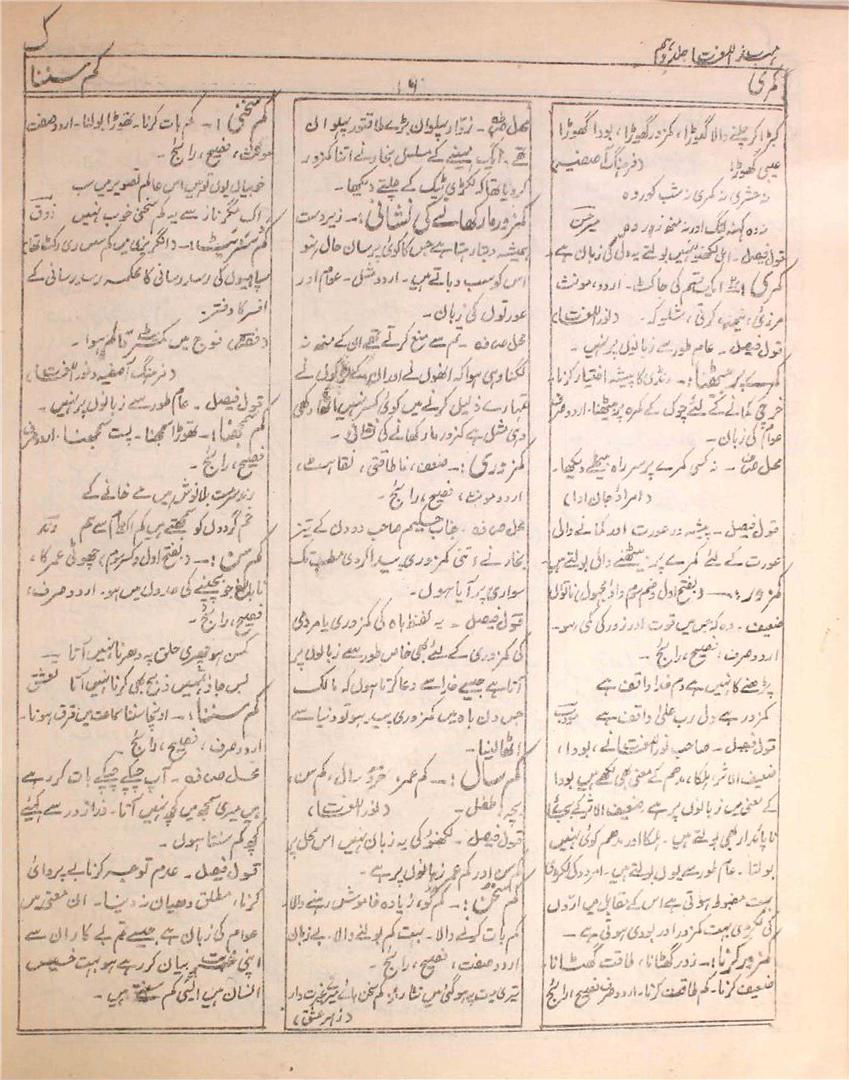 ک
مہذب اللغات جلد دہم
کمری
۶۱
کم سننا
کبڑا کر چلنے والا گھوڑا، کمزور گھوڑا، بودا گھوڑا
عیبی گھوڑا۔ (فرہنگ آصفیہ)
نہ حشری نہ کمری نہ شب کور وہ
نہ وہ کہنہ لنگ اور نہ منھ زور وہ میر حسن
قول فیصل۔ اہل لکھنؤ نہیں بولتے یہ دلی کی زبان ہے
کمری :۔ ایک قسم کی جاکٹ۔ اردو، مونث
مرزئی، نیمہ، کرتی، شلوکہ۔ (نور اللغات)
قول فیصل۔ عام طور سے زبانوں پر نہیں۔
کمرے پر بیٹھنا :۔ رنڈی کا پیشہ اختیار کرنا۔
خرچی کمانے کے لئے چوک کے کمرہ پر بیٹھنا۔ اردو صرف
عوام کی زبان۔
محل صرف۔ نہ کسی کمرے پر سر راہ بیٹھے دیکھا۔
(امراؤ جان ادا)
قول فیصل۔ پیشہ ور عورت اور کمانے والی
عورت کے لئے کمرے پر بیٹھنے والی بولتے ہیں
کمزور :۔ (بفتح اول و ضم سوم واؤ مجہول) ناتواں
ضعیف۔ وہ کہ جس میں قوت اور زور کی کمی ہو۔
اردو صرف، فصیح، رائج۔
پڑھنے کا نہیں ہے دم خدا واقف ہے
کمزور ہے دل رب علیٰ واقف ہے
قول فیصل۔ صاحب نور اللغات نے، بودا،
ضعیف الاثر، ہلکا، مدھم کے معنی بھی لکھے ہیں بودا
کے معنی میں زبانوں پر ہے ضعیف الاثر کے بجائے
ناپائدار بھی بولتے ہیں۔ ہلکا اور مدھم کوئی نہیں
بولتا۔ عام طور سے یوں بولتے ہیں۔ امرود کی لکڑی
بہت مضبوط ہوتی ہے اس کے مقابل میں اروں
کی لکڑی بہت کمزور اور بودی ہوتی ہے۔
کمزور کرنا :۔ زور گھٹانا، طاقت گھٹانا
ضعیف کرنا۔ کم طاقت کرنا۔ اردو صرف فصیح، رائج
محل صرف۔ زوار پہلوان بڑے طاقتور پہلوان
تھے۔ ایک مہینے کے مسلسل بخار نے اتنا کمزور
کر دیا تھا کہ لکڑی ٹیک کے چلتے دیکھا۔
کمزور مار کھانے کی نشانی :۔ زبردست
ہمیشہ دبتا رہتا ہے جس کا کوئی پرسان حال نہ ہو
اس کو سب دباتے ہیں۔ اردو مثل۔ عوام اور
عورتوں کی زبان۔
محل صرف۔ تم سے منع کرتے تھے ان کے منھ نہ
لگنا وہی ہوا کہ انھوں نے اور ان کے لوگوں نے
تمہارے ذلیل کرنے میں کوئی کسر نہیں اٹھا رکھی
وہی مثل ہے کمزور مار کھانے کی نشانی۔
کمزوری :۔ ضعف، ناطاقتی، نقاہت،
اردو مونث، فصیح، رائج۔
محل صرف۔ جناب حکیم صاحب دو دن کے تیز
بخار نے اتنی کمزوری پیدا کر دی مطب تک
سواری پر آیا ہوں۔
قول فیصل۔ یہ لفظ باہ کی کمزوری یا مردی
کی کمزوری کے لئے بھی خاص طور سے زبانوں پر
آتا ہے جیسے خدا سے دعا کرتا ہوں کہ مالک
جس دن باہ میں کمزوری پیدا ہو تو دنیا سے
اٹھا لینا۔
کم سال :۔ کم عمر، خرد سال، کم سن،
بچہ، طفل۔ (نور اللغات)
قول فیصل۔ لکھنؤ کی یہ زبان نہیں اس محل پر
کم سن اور کم عمر زبانوں پر ہے۔
کم سخن :۔ کم گو، زیادہ خاموش رہنے والا
کم بات کرنے والا۔ بہت کم بولنے والا۔ بے زبان
اردو صفت، فصیح، رائج۔
تیری صورت پر ہو گئی میں نثار ہے کم سخن ہائے میرے غیرت دار
(زہر عشق)
کم سخنی :۔ کم بات کرنا۔ تھوڑا بولنا۔ اردو صفت
مونث، فصیح، رائج۔
خوبیاں لوں تو ہیں اس عالم تصویر میں سب
اک مگر ناز سے یہ کم سخنی خوب نہیں ذوق
کمسریٹ :۔ (انگریزی میں کم سس ری ٹ تھا)
سپاہیوں کی رسد رسانی کا محکمہ رسد رسانی کے
افسر کا دفتر۔
(فقرہ) فوج میں کمسریٹ قائم ہوا۔
(فرہنگ آصفیہ و نور اللغات)
قول فیصل۔ عام طور سے زبانوں پر نہیں۔
کم سمجھنا :۔ تھوڑا سمجھنا۔ پست سمجھنا۔ اردو صرف
فصیح، رائج۔
رند سرمست بلا نوش ہیں مے خانے کے
خم گردوں کو سمجھتے ہیں کم اک جام سے ہم رند
کم سن :۔ (بفتح اول و کسر سوم) چھوٹی عمر کا،
نابالغ جو بچپنے کی حدود میں ہو۔ اردو صرف،
فصیح، رائج۔
کمسن ہو چھری حلق پہ دھرنا نہیں آتا
بس جاؤ تمہیں ذبح بھی کرنا نہیں آتا تعشق
کم سننا :۔ اونچا سننا سماعت میں فرق ہونا۔
اردو صرف، فصیح، رائج۔
محل صرف۔ آپ چپکے چپکے بات کر رہے
ہیں میری سمجھ میں کچھ نہیں آتا۔ ذرا زور سے کہئے
کچھ کم سنتا ہوں۔
قول فیصل۔ عدم توجہ کرنا بے پروائی
کرنا، مطلق دھیان نہ دینا۔ ان معنی میں
عوام کی زبان ہے جیسے تم بے کار ان سے
اپنی غربت بیان کر رہے ہو بہت خسیس
انسان ہیں ایسی کم سنتے ہیں۔